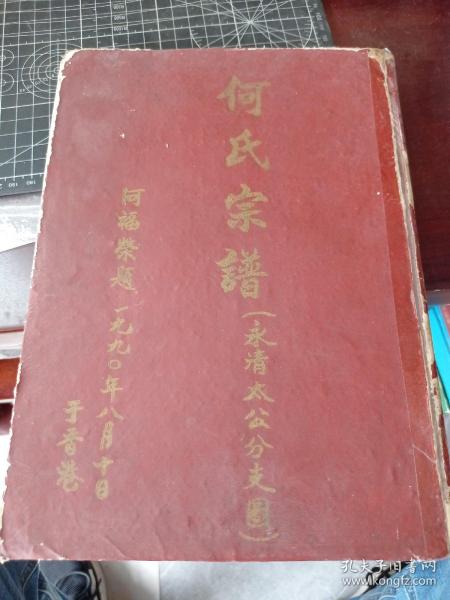 何氏宗譜（永清太公分支圖）
何福榮題一九九〇年八月十日
于香港
孔夫子旧书网
www.kongfz.com